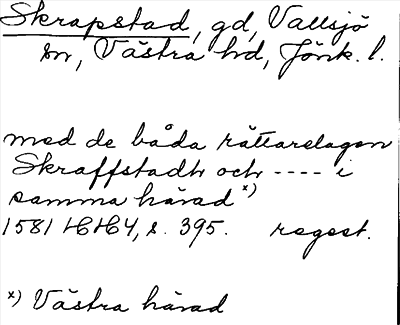 Skrapstad, gd, Vallsjö
sn, Västra hd, Jönk. l.
med de båda rättarelagen
Skraffstadh och ---- i
samma härad x)
1581 HH4, s. 395. regest.
x) Västra härad